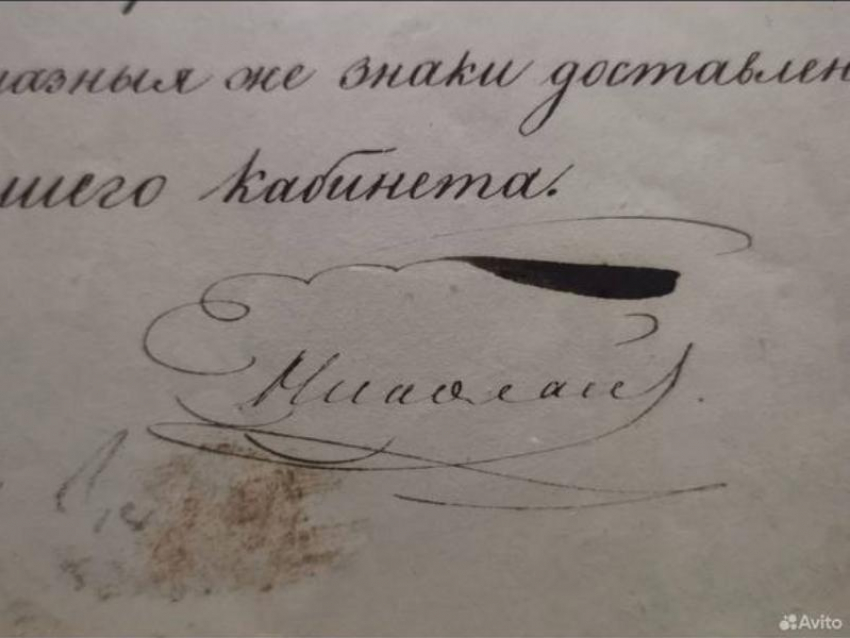 мазныя же знаки доставлен
шего кабинета.
Николай.
Avito